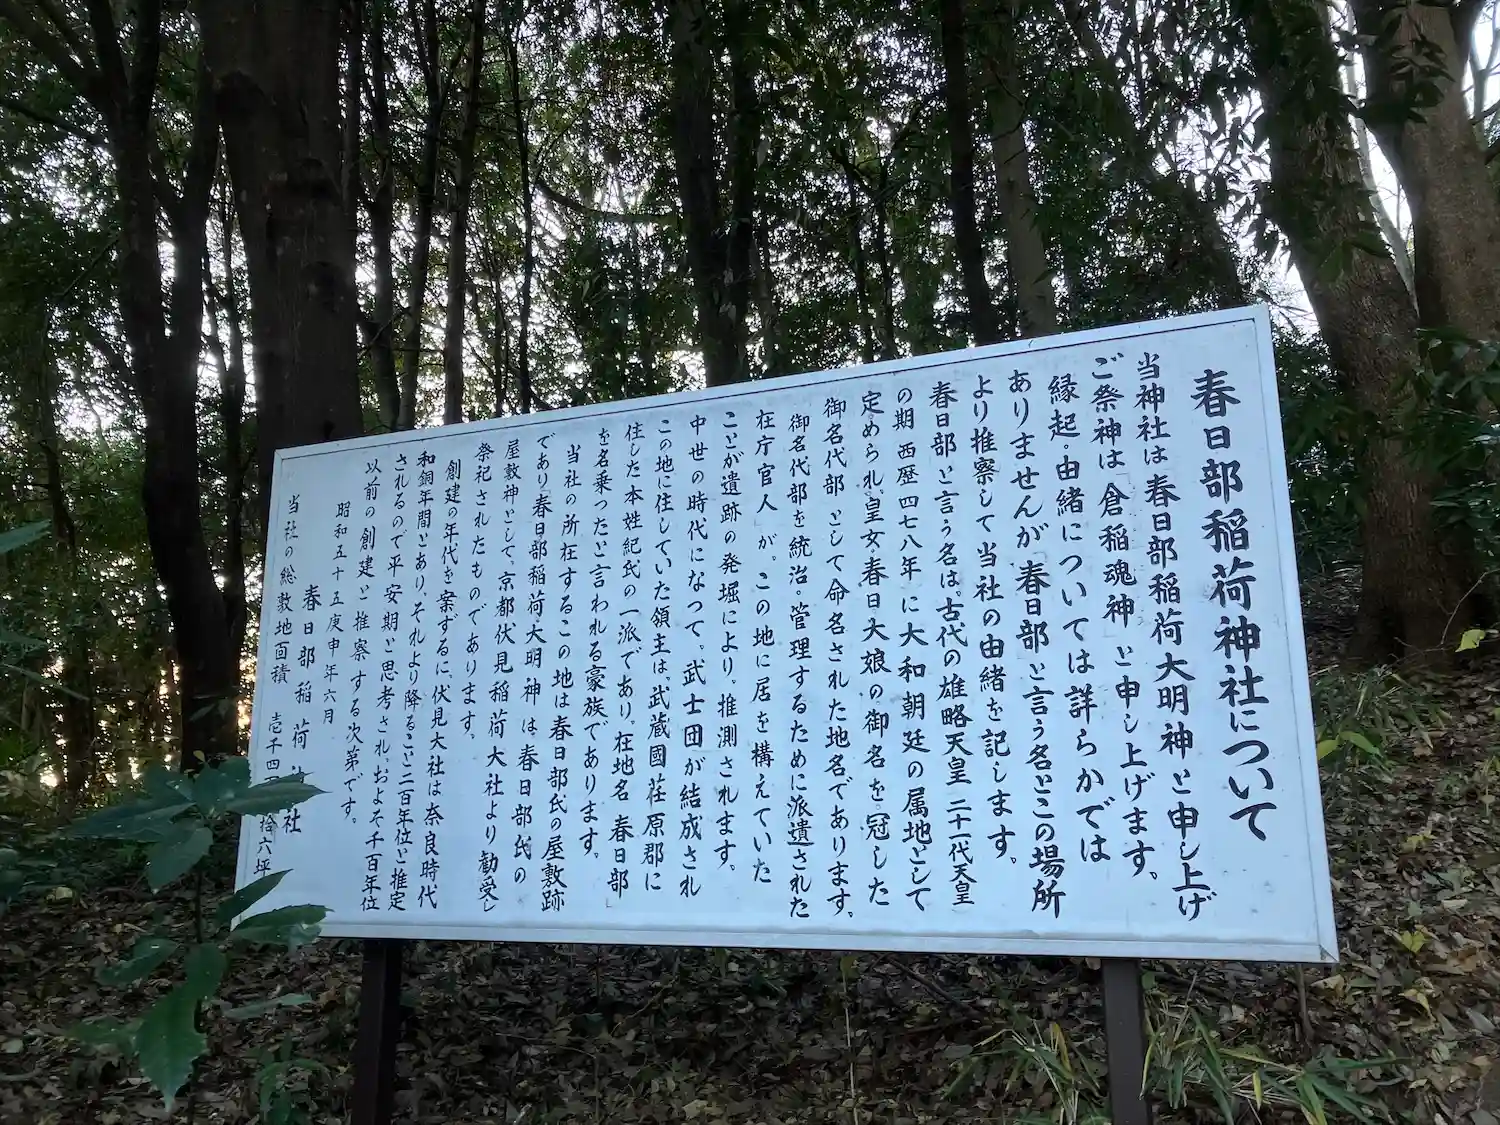 春日部稲荷神社について
当神社は春日部稲荷大明神と申し上げ
ご祭神は「倉稲魂神」と申し上げます。
縁起・由緒については詳らかでは
ありませんが「春日部」と言う名とこの場所
より推察して当社の由緒を記します。
春日部と言う名は。古代の雄略天皇二十一代天皇
の期西歴四七八年に大和朝廷の属地として
定められ、皇女・春日大娘の御名を冠した
御名代部として命名された地名であります。
御名代部を統治・管理するために派遣された
在庁官人」が。この地に居を構えていた
ことが遺跡の発堀により。推測されます。
中世の時代になって。武士団が結成され
この地に住していた領主は、武蔵國荏原郡に
住した本姓紀氏の一派であり。在地名「春日部」
を名乗ったと言われる豪族であります。
当社の所在するこの地は春日部氏の屋敷跡
であり「春日部稲荷大明神」は春日部氏の
屋敷神として、京都伏見稲荷大社より勧受し
祭祀されたものであります。
創建の年代を案ずるに、伏見大社は奈良時代
和銅年間とあり、それより降ること二百年位と推定
されるので平安期と思考され、およそ千百年位
以前の創建と推察する次第です。
昭和五十五庚申年六月
春日部稲荷社
当社の総敷地面積 壱千四拾六坪